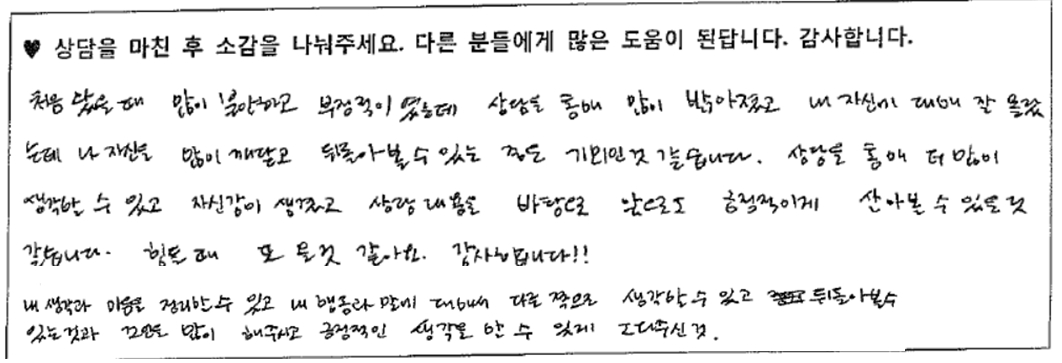 ♥ 상담을 마친 후 소감을 나눠주세요. 다른 분들에게 많은 도움이 된답니다. 감사합니다.
처음 왔을 때 많이 불안하고 부정적이였는데 상담을 통해 많이 밝아졌고 내 자신에 대해 잘 몰랐
는데 나 자신을 많이 깨닫고 뒤돌아볼 수 있는 좋은 기회인것 같습니다. 상담을 통해 더 많이
생각할 수 있고 자신감이 생겼고 상담 내용을 바탕으로 앞으로도 긍정적이게 살아볼 수 있을것
같습니다. 힘들 때 또 올것 같아요. 감사합니다!!
내 생각과 마음을 정리할 수 있고 내 행동과 말에 대해서 다른 쪽으로 생각할 수 있고 뒤돌아볼수
있는것과 많이 해주시고 긍정적인 생각을 할 수 있게 도와주신 것.